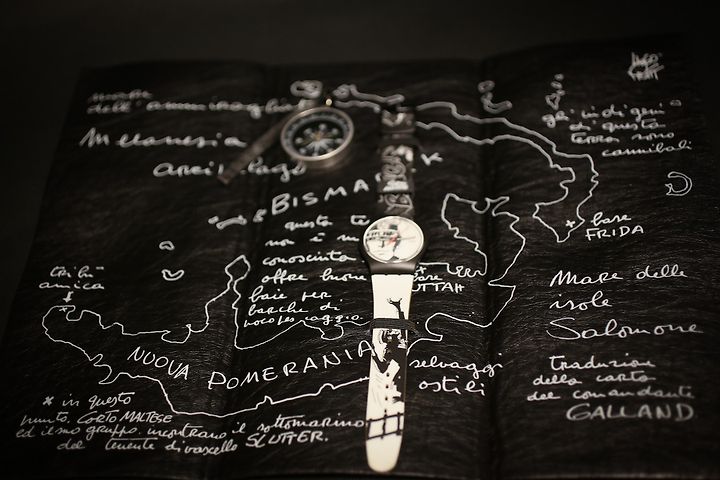 mare
dell'ammiraglia
Melanesia
BISMA K
gli indigeni
di questa
terra sono
cannibali
base
FRIDA
questa te
non è m
conosciuta
offre buone
baie per
barche di
base
UTTAH
tribù
amica
mare delle
isole
Salomone
NUOVA POMERANIA
selvaggi
ostili
traduzione
della carta
del comandante
GALLAND
x in questo
punto, CORTO MALTESE
ed il suo gruppo, incontrano il sottomarino
del tenente di vascello SLÜTTER.